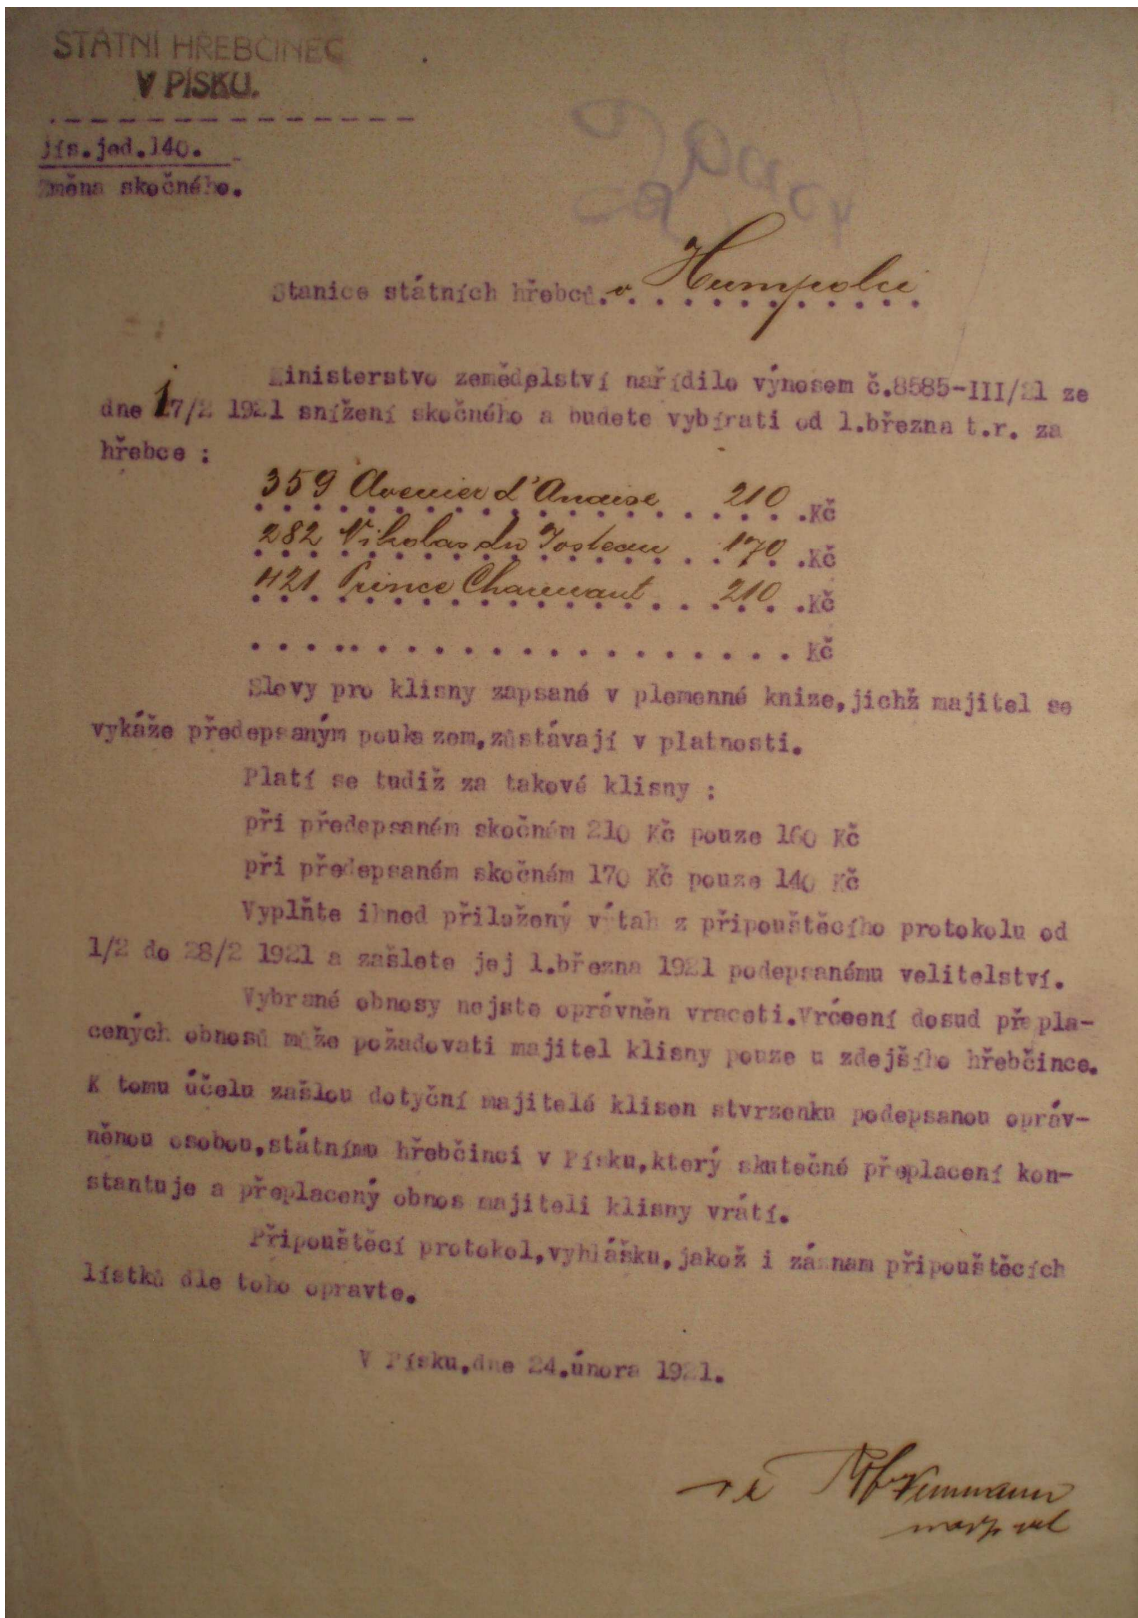 STÁTNÍ HŘEBČINEC
V PÍSKU.
Jís.jed.140.
Změna skočného.
Stanice státních hřebců. v Humpolci
Ministerstvo zemědělství nařídilo výnosem č.8585-III/21 ze
dne 17/2 1921 snížení skočného a budete vybírati od 1.března t.r. za
hřebce :
359 Avenier d'Anaise 210 Kč
282 Nikolas du Tosteau 170 Kč
421 Prince Charmant 210 Kč
Kč
Slevy pro klisny zapsané v plemenné knize,jichž majitel se
vykáže předepsaným poukazem,zůstávají v platnosti.
Platí se tudiž za takové klisny :
při předepsaném skočném 210 Kč pouze 160 Kč
při předepsaném skočném 170 Kč pouze 140 Kč
Vyplňte ihned přiložený výtah z připouštěcího protokolu od
1/2 do 28/2 1921 a zašlete jej 1.března 1921 podepsanému velitelství.
Vybrané obnosy nejste oprávněn vraceti.Vrácení dosud přepla-
cených obnosů může požadovati majitel klisny pouze u zdejšího hřebčince.
K tomu účelu zašlou dotyční majitelé klisen stvrzenku podepsanou opráv-
něnou osobou,státnímu hřebčinci v Písku,který skutečné přeplacení kon-
stantuje a přeplacený obnos majiteli klisny vrátí.
Připouštěcí protokol,vyhlášku,jakož i záznam připouštěcích
lístků dle toho opravte.
V Písku,dne 24.února 1921.